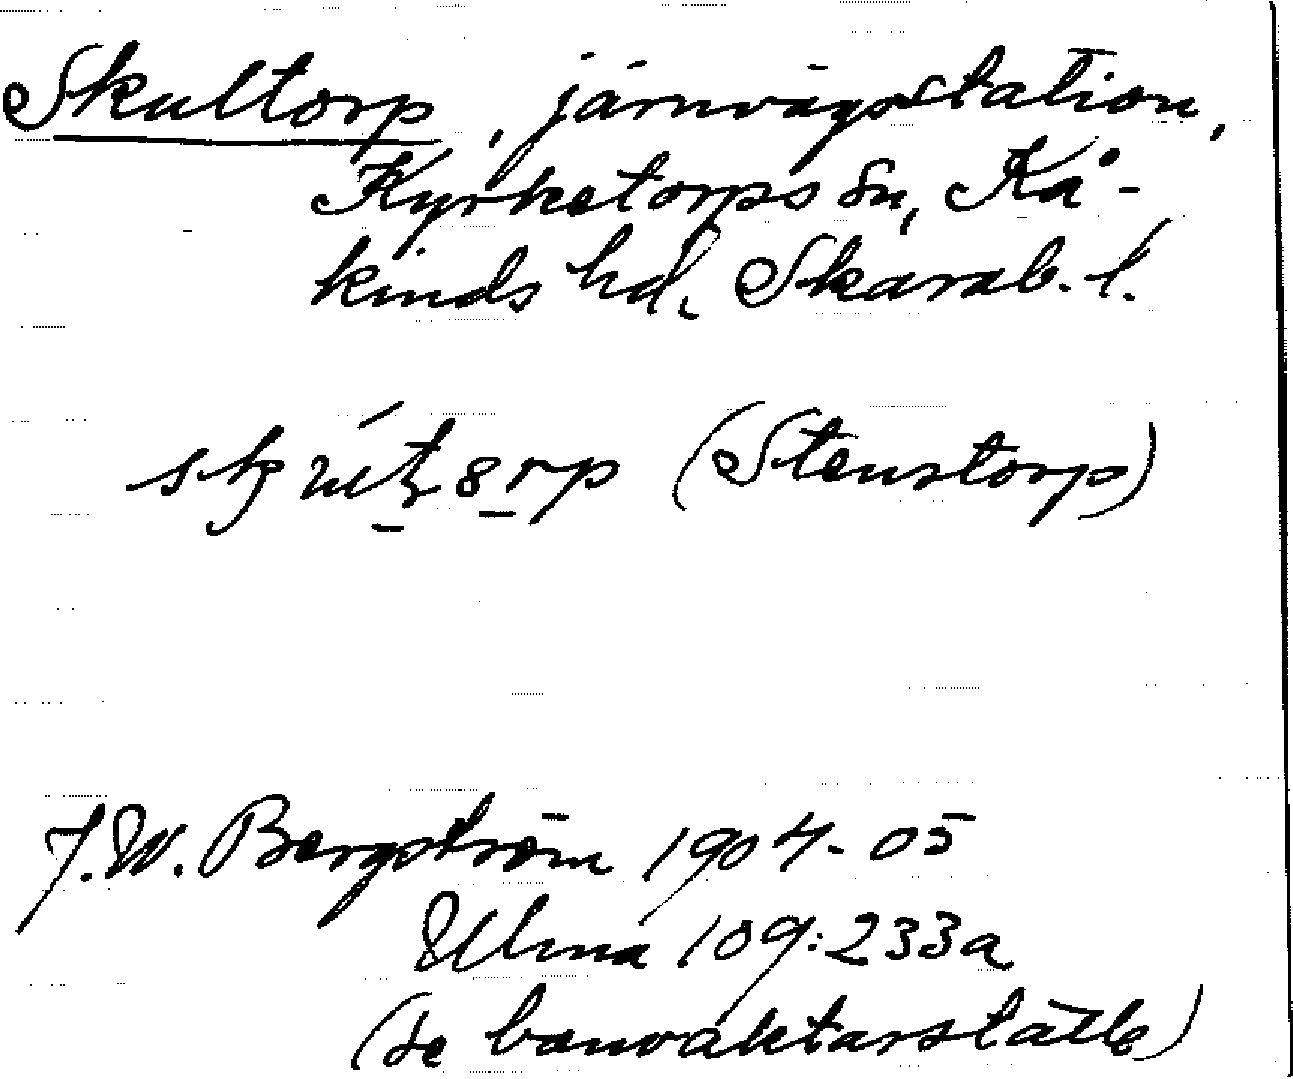 Skultorp, järnvägsstation,
Kyrketorps sn, Kå-
kinds hd, Skarab. l.
(Stenstorp)
J. W. Bergström 1904-05
Ulma 109:233a
(se banvaktarställe)